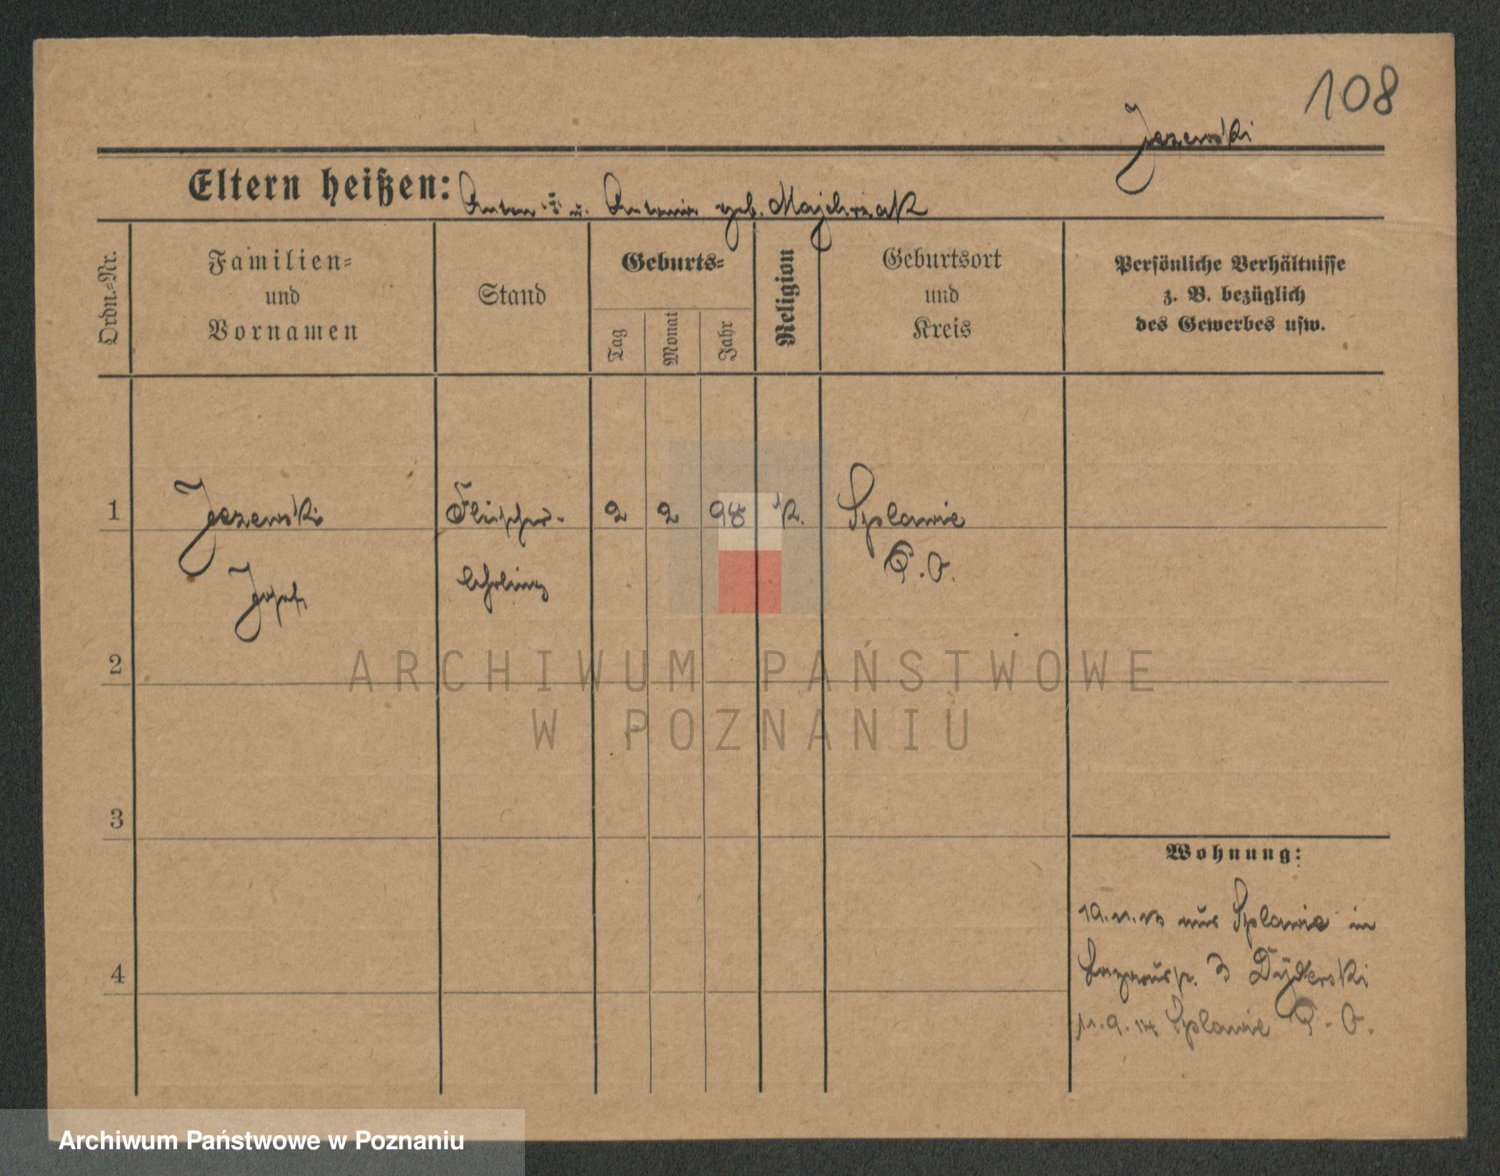 108
Jezewski
Eltern heißen: Anton u. Antonie geb. Majchrzak
Ordn.-Nr.
Familien-
und
Vornamen
Stand
Geburts-
Tag
Monat
Jahr
Religion
Geburtsort
und
Kreis
Persönliche Verhältnisse
z. B. bezüglich
des Gewerbes usw.
1 Jezewski Fleischer- 2 2 98 k. Splawie
Josef lehrling P. O.
2
ARCHIWUM PAŃSTWOWE
W POZNANIU
3
Wohnung:
19.11.13 aus Splawie in
4
Lazarusstr. 3 Dyderski
11.9.14 Splawie P. O.
Archiwum Państwowe w Poznaniu